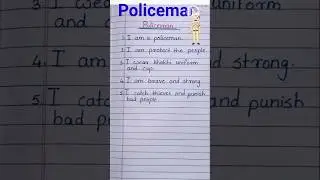 Policema
Policeman
1. I am a policeman.
2. I am protect the people
3. I wear khakhi uniform
and cap.
4. I am brave and strong
5. I catch thieves and punish
bad people
uniform
and c
4. I am
strong.
5. I catch
and punish
bad p